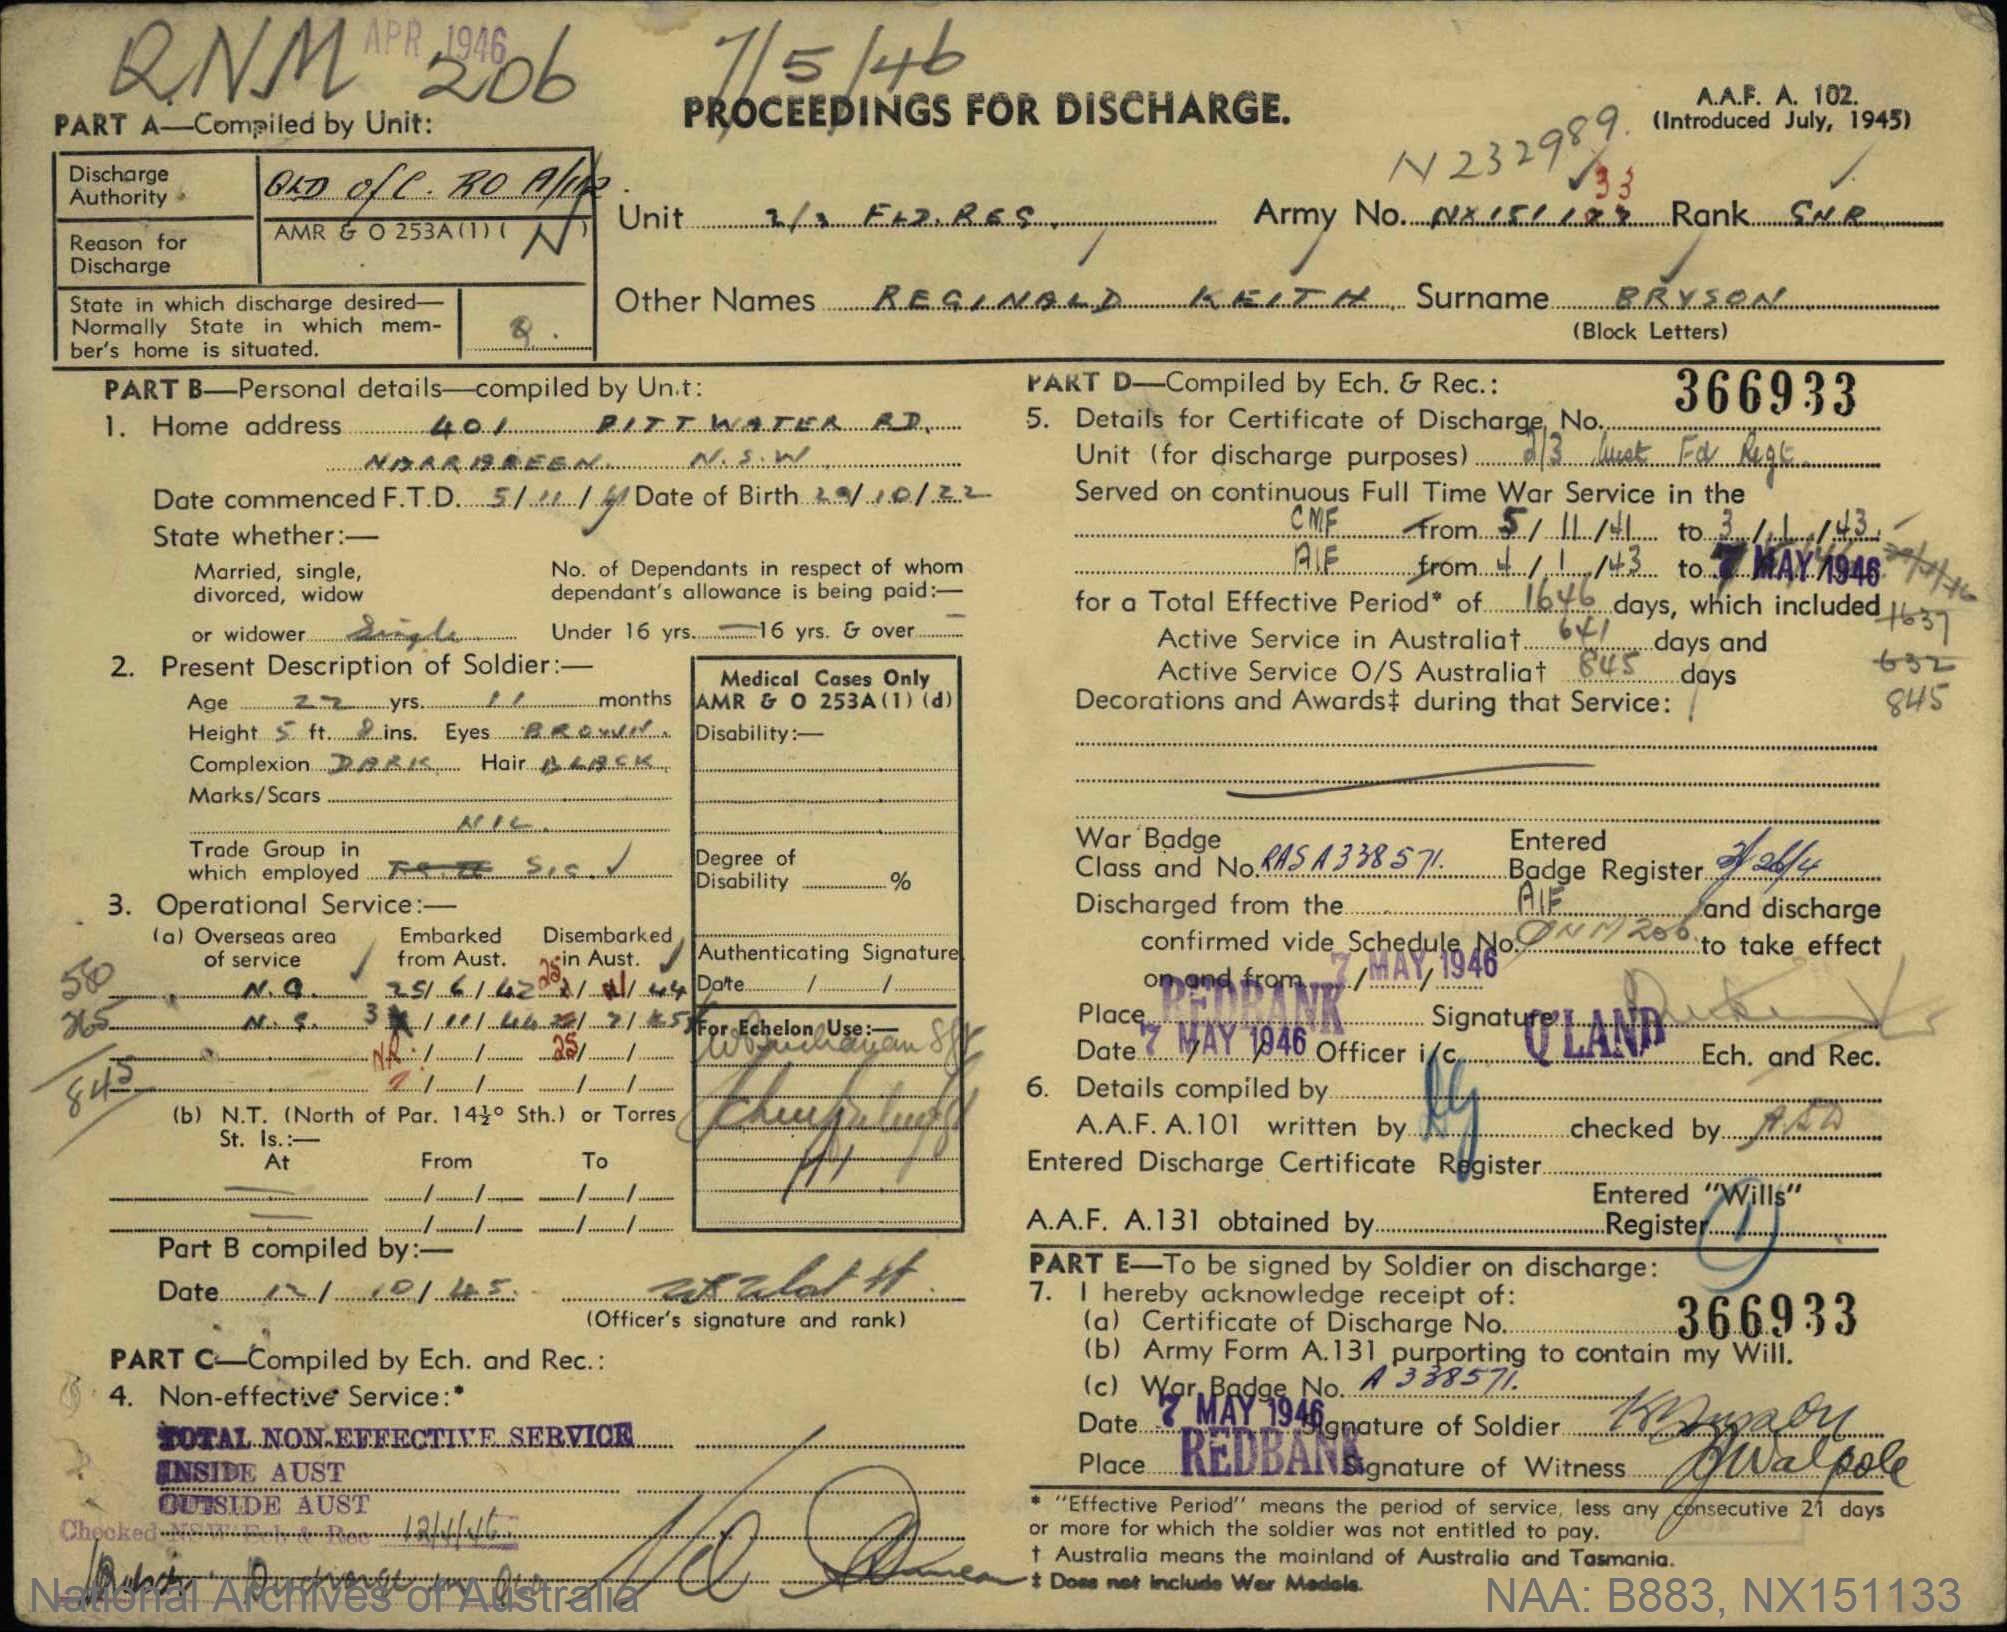 QNM 206
APR 1946
7/5/46
PROCEEDINGS FOR DISCHARGE.
A.A.F. A. 102.
(Introduced July, 1945)
PART A—Compiled by Unit:
N232989.
Discharge Authority QLD of C. RO A/
Reason for Discharge AMR & O 253A(1) ( N )
State in which discharge desired—
Normally State in which mem-
ber's home is situated. Q.
Unit 2/3 FLD. REG. Army No. NX151133 Rank GNR
Other Names REGINALD KEITH Surname BRYSON
(Block Letters)
PART B—Personal details—compiled by Unit:
1. Home address 401 PITTWATER RD.
NARRABEEN N.S.W.
Date commenced F.T.D. 5/11/41 Date of Birth 29/10/22
State whether:—
Married, single,
divorced, widow
or widower Single
No. of Dependants in respect of whom
dependant's allowance is being paid:—
Under 16 yrs. — 16 yrs. & over —
2. Present Description of Soldier:—
Age 22 yrs. 11 months
Height 5 ft. 8 ins. Eyes BROWN.
Complexion DARK Hair BLACK.
Marks/Scars
NIL.
Trade Group in
which employed Sig.
Medical Cases Only
AMR & O 253A(1) (d)
Disability:—
Degree of
Disability %
Authenticating Signature
Date / /
For Echelon Use:—
3. Operational Service:—
(a) Overseas area of service Embarked from Aust. Disembarked in Aust.
N.G. 25/6/42 25/ /44
N.G. 3/11/44 25/7/45
845
(b) N.T. (North of Par. 14½° Sth.) or Torres
St. Is.:—
At From To
— / / / /
— / / / /
Part B compiled by:—
Date 12/10/45.
(Officer's signature and rank)
PART C—Compiled by Ech. and Rec.:
4. Non-effective Service:*
TOTAL NON-EFFECTIVE SERVICE
INSIDE AUST
OUTSIDE AUST
Checked NSW Ech & Rec
PART D—Compiled by Ech. & Rec.:
366933
5. Details for Certificate of Discharge, No.
Unit (for discharge purposes) 2/3 Aust Fd Regt
Served on continuous Full Time War Service in the
CMF from 5/11/41 to 3/1/43
AIF from 4/1/43 to 7 MAY 1946
for a Total Effective Period* of 1646 days, which included 1637
Active Service in Australia† 641 days and 632
Active Service O/S Australia† 845 days 845
Decorations and Awards‡ during that Service:
War Badge
Class and No. RAS A338571. Entered
Badge Register 26/4
Discharged from the AIF and discharge
confirmed vide Schedule No. QNM 206 to take effect
on and from 7 MAY 1946
Place REDBANK Signature
Date 7 MAY 1946 Officer i/c Q'LAND Ech. and Rec.
6. Details compiled by
A.A.F. A.101 written by checked by
Entered Discharge Certificate Register
A.A.F. A.131 obtained by Entered "Wills"
Register
PART E—To be signed by Soldier on discharge:
7. I hereby acknowledge receipt of:
(a) Certificate of Discharge No. 366933
(b) Army Form A.131 purporting to contain my Will.
(c) War Badge No. A 338571.
Date 7 MAY 1946 Signature of Soldier RKBryson
Place REDBANK Signature of Witness Walpole
* "Effective Period" means the period of service, less any consecutive 21 days
or more for which the soldier was not entitled to pay.
† Australia means the mainland of Australia and Tasmania.
‡ Does not include War Medals.
National Archives of Australia
NAA: B883, NX151133